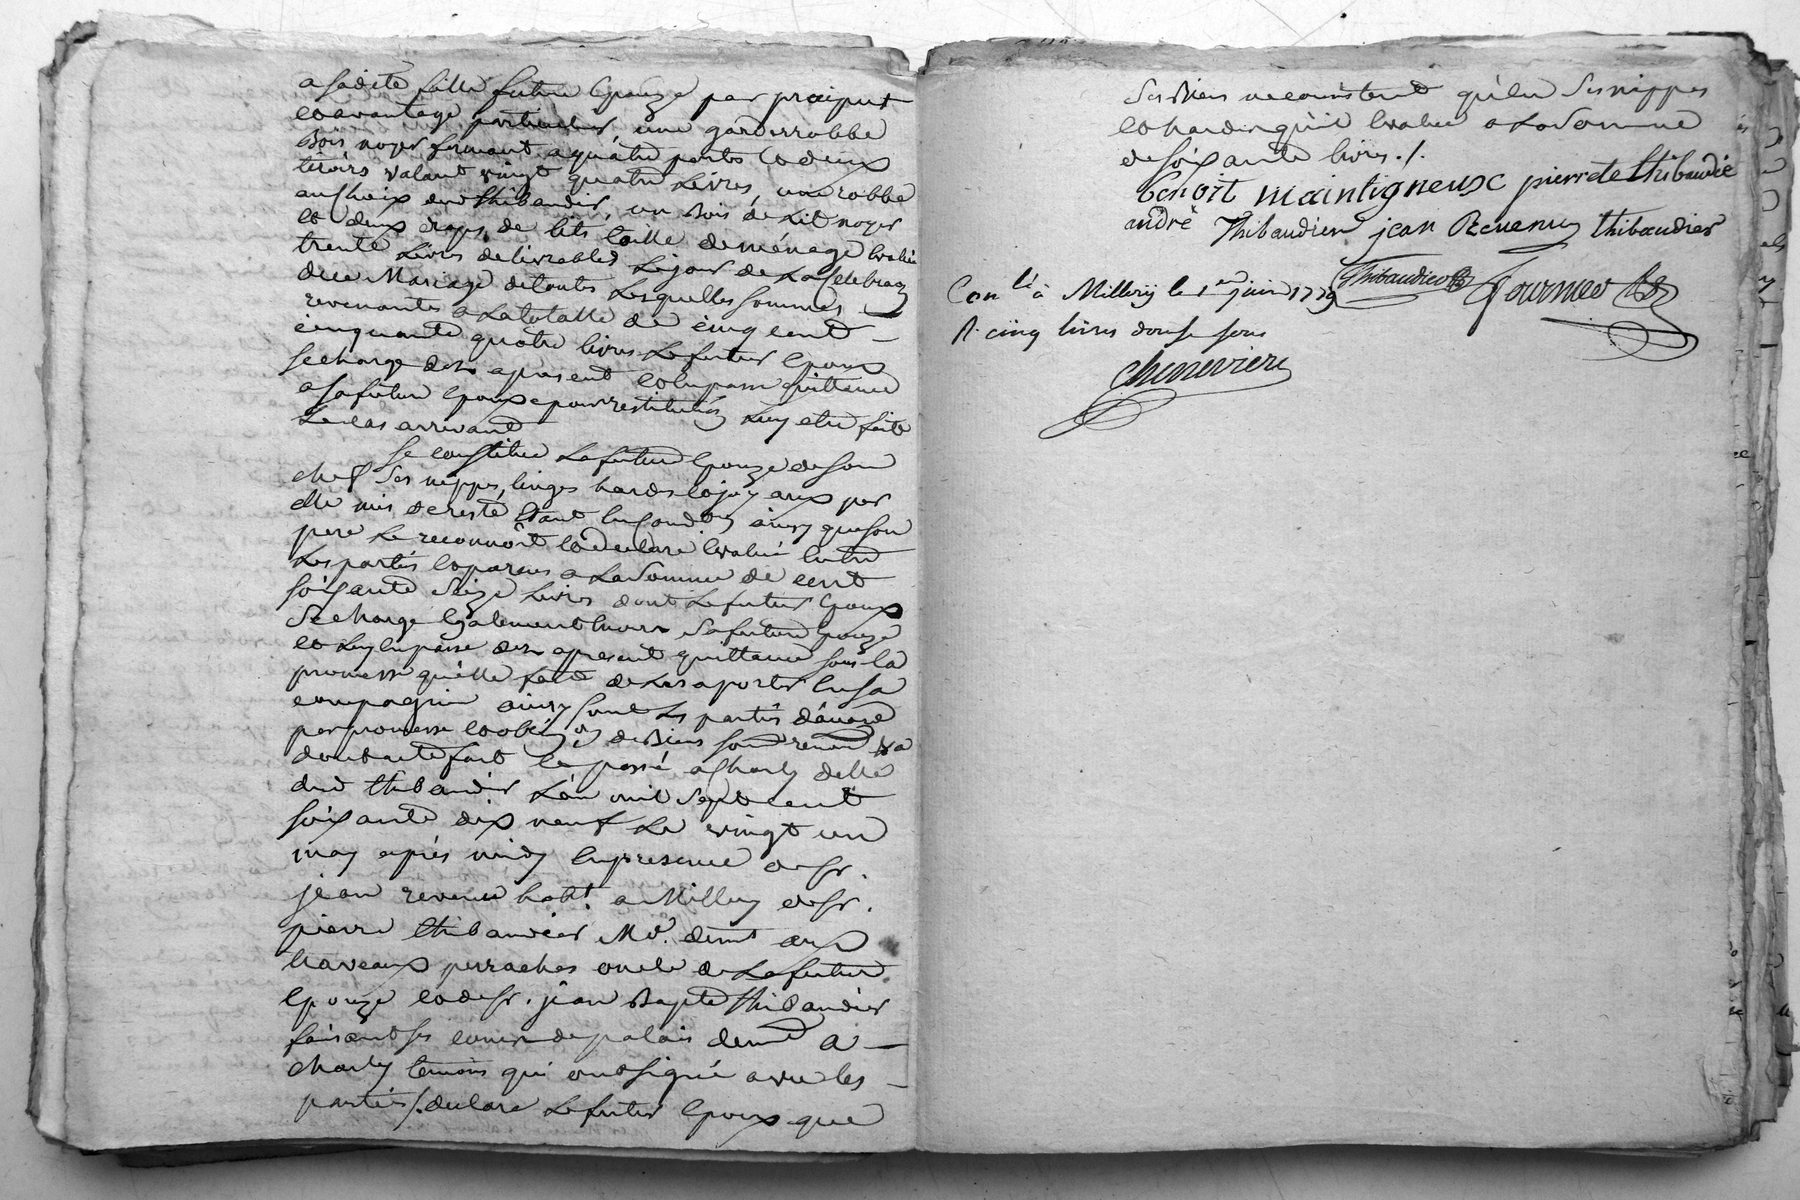 a sadite fille future Epouze par preciput
et avantage particulier, une garderrobbe
Bois noyer fermant a quatre portes et deux
tiroirs valant vingt quatre Livres, une robbe
au choix dud thibaudier, un Bois de Lit noyer
et deux draps de lits toille de ménage Evalué
trente Livres delivrables Le jour de La Celebraon
dece Mariage de toutes Lesquelles sommes
revenantes a La totalle de cinq cent
cinquante quatre livres Le futur Epoux
se charge des a present et En passe quittance
a sa future Epouze pour restitution Luy etre faite
Le cas arrivant
Se constitue La future Epouze de son
chef ses nippes, linges hardes et joyaux par
elle mis de reste Etant En condon ainsy que son
pere Le reconnoit et declare Evalué Entre
Les partiés comparues a La Somme de cent
soixante Seize Livres dont Le futur Epoux
Se charge Egalement Envers Sa future Epouze
et Luy En passe des a present quittance sous la
promesse qu'elle fait de Les aporter En sa
compagnie ainsy sont Les partiés d'accord
par promesse et oblig on de Biens soum renon &a
dont acte fait Et passé a Charly Etude
dud thibaudier L'an mil Sept cent
soixante dix neuf Le vingt un
may aprés midy En presence de Sr.
jean revenu habt. a Millery de Sr.
pierre thibaudier Md. demt aux
travaux perraches oncle de La future
Epouze et de Sr. jean Bapte thibaudier
faisant Ses cours de palais demt a
charly temoins qui ont signé avec les
partiés /. declare Le futur Epoux que
Ses Biens ne consistent qu'En Ses nippes
et hardes qu'il Evalue a La Somme
de soixante livres ./.
benoit maintigneux pierre te thibaudié
andré Thibaudier jean Revenu thibaudier
Thibaudier fournier
Con lé à Millery le 1er juin 1779
R. cinq livres douse sous
Cheneviere